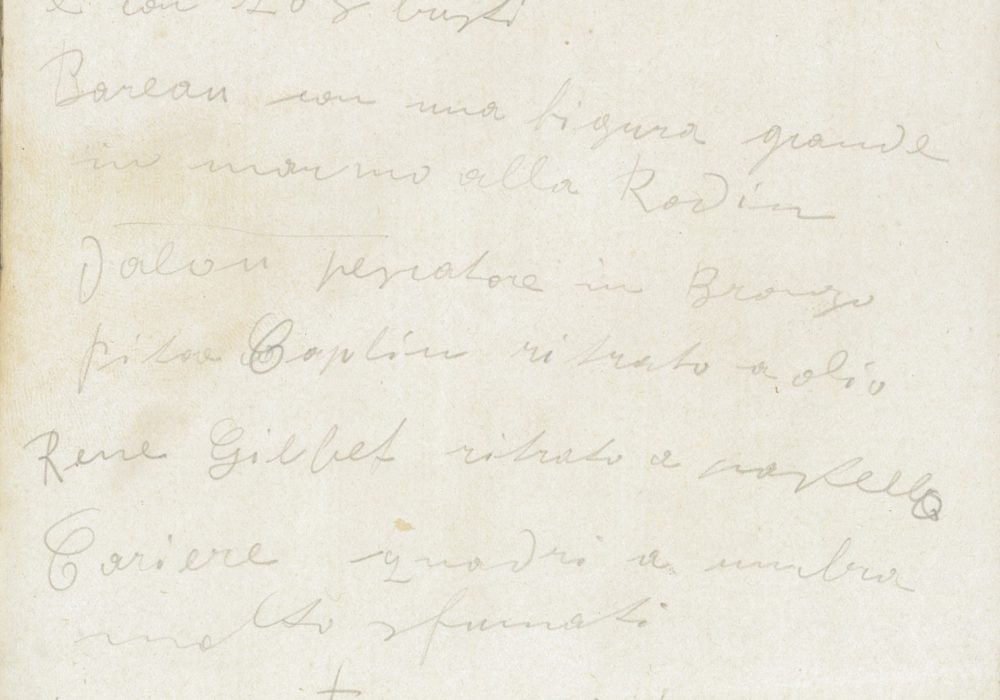 e con 2 o 3 busti
Bareau con una figura grande
in marmo alla Rodin
Dalou pescatore in Bronzo
pitor Caplin ritrato a olio
Rene Gilbet ritrato a pastello
Cariere quadri a umbra
molto sfumati